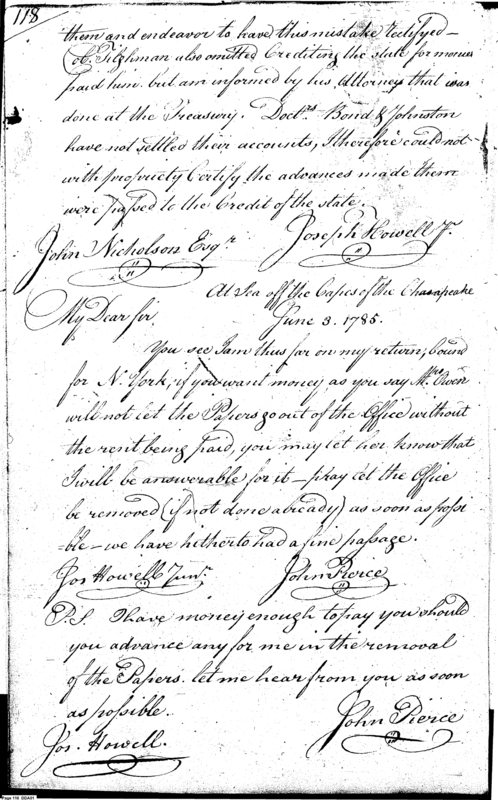 118
them and endeavor to have this mistake rectifyed –
Col. Tilghman also omitted Crediting the state for monies
paid him. but am informed by his Attorney that was
done at the Treasury. Doct.rs Bond & Johnston
have not settled their accounts, I therefore could not
with propriety Certify the advances made them
were passed to the Credit of the state.
Joseph Howell Jr.
John Nicholson Esqr.
At Sea off the Capes of the Chesapeake
June 3. 1785.
My Dear Sir,
You see I am thus far on my return, bound
for N. York, if you want money as you say Mrs. Owen
will not let the Papers go out of the Office without
the rent being paid, you may let her know that
I will be answerable for it – pray let the Office
be removed (if not done already) as soon as possi
=ble – we have hitherto had a fine passage.
John Pierce
Jos Howell Junr.
P.S. I have money enough to pay you should
you advance any for me in the removal
of the Papers. let me hear from you as soon
as possible.
John Pierce
Jos. Howell.